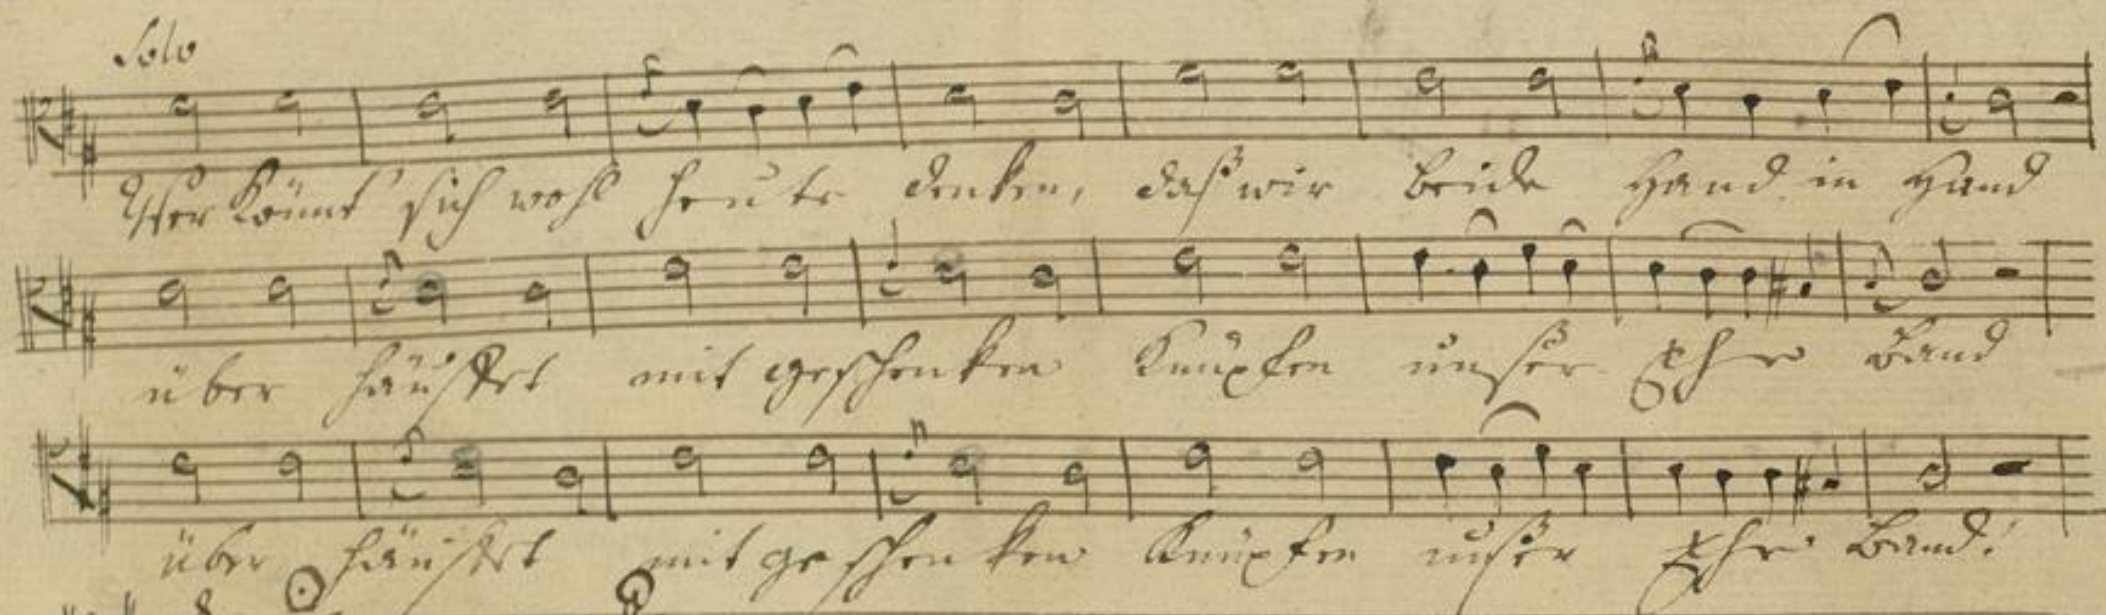 Solo
Wer könnt sich wohl heute denken, daß wir beide Hand in Hand
über häuffet mit geschenken Knüpfen unser Ehe Band
über häuffet mit geschenken Knüpfen unser Ehe Band.